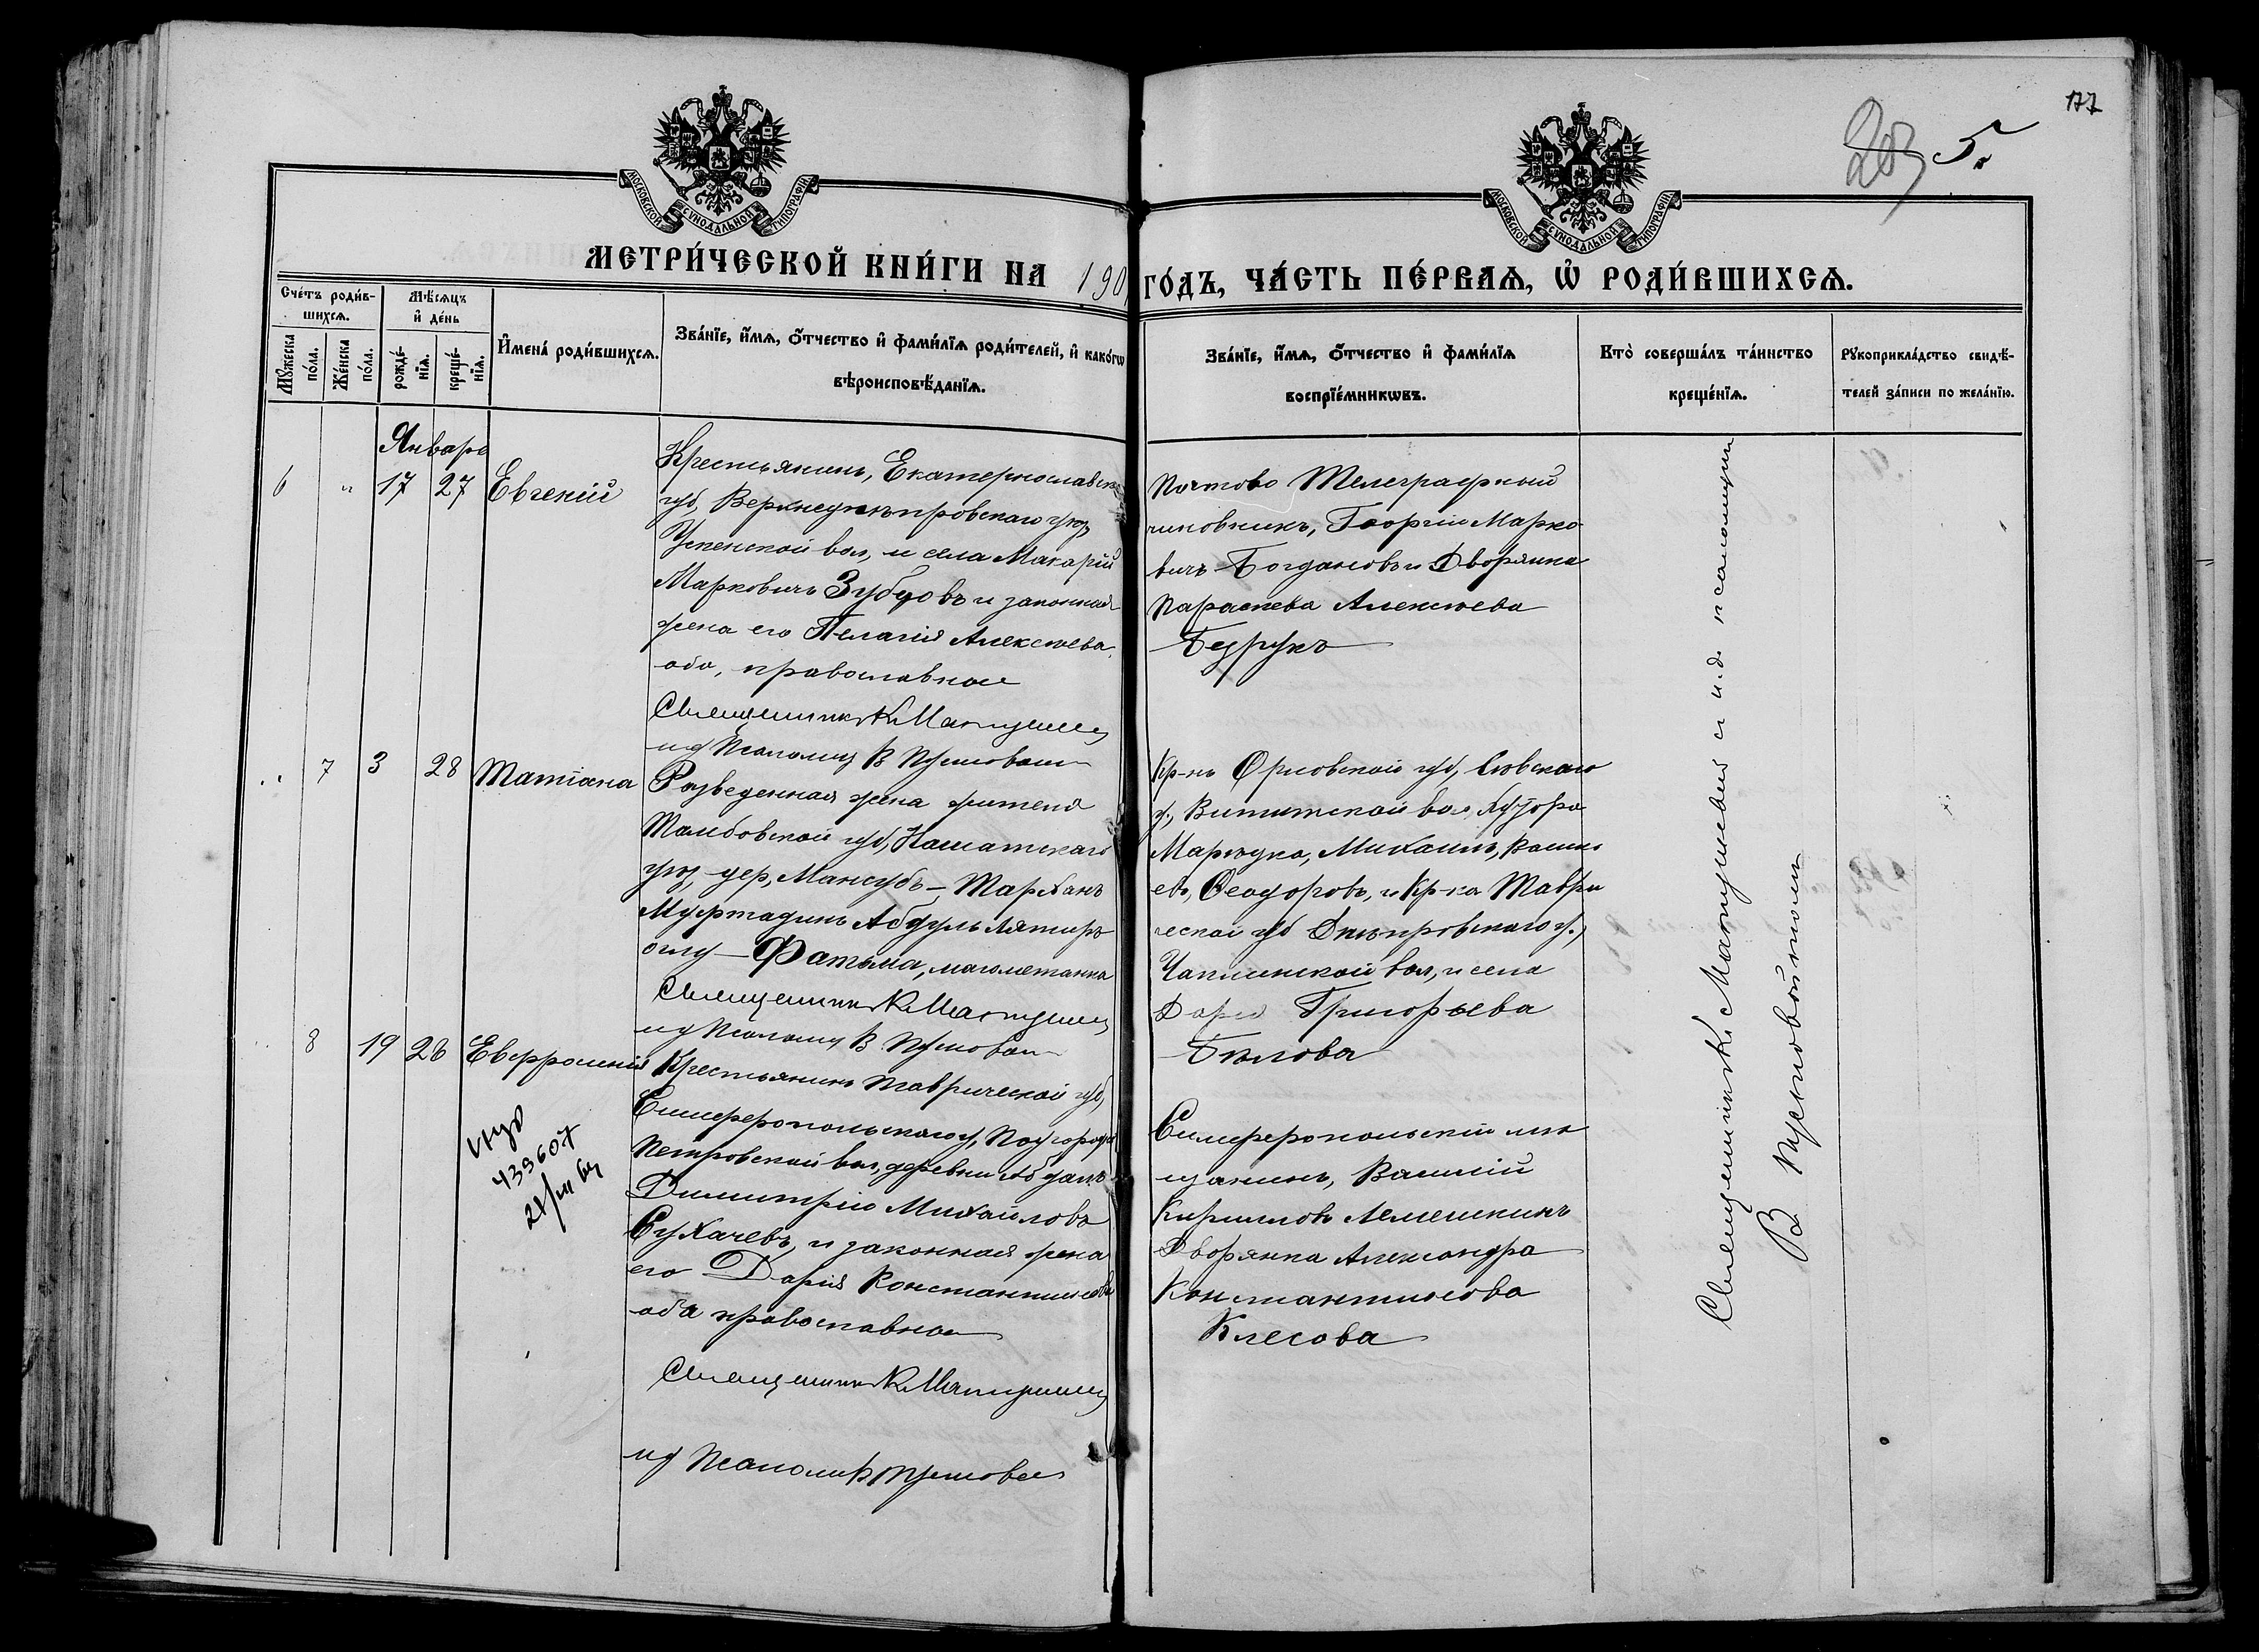 177
203 5.
МОСКОВСКОЙ СѴНОДАЛЬНОЙ ТИПОГРАФІИ
МОСКОВСКОЙ СѴНОДАЛЬНОЙ ТИПОГРАФІИ
МЕТРИ́ЧЕСКОЙ КНИ́ГИ НА 190
ГО́ДЪ, ЧА́СТЬ ПЕ́РВАѦ, Ѡ҆ РОДИ́ВШИХСѦ.
Сче́тъ роди́в-
шихсѧ.
Мꙋ́жеска
по́ла.
Же́нска
по́ла.
Мѣ́сѧцъ
и҆ де́нь
рожде́-
нїѧ.
креще́-
нїѧ.
И҆мена̀ роди́вшихсѧ.
Зва́нїе, и҆́мѧ, ѻ҆́тчество и҆ фами́лїѧ роди́телей, и҆ како́гѡ
вѣроисповѣ́данїѧ.
Зва́нїе, и҆́мѧ, ѻ҆́тчество и҆ фами́лїѧ
воспрїе́мникѡвъ.
Кто̀ соверша́лъ та́инство
креще́нїѧ.
Рꙋкоприкла́дство свидѣ́-
телей за́писи по жела́нїю.
Январь
6 " 17 27 Евгеній
Крестьянинъ, Екатеринославск
губ, Верхнеднѣпровскаго уѣз,
Успенской вол, и села Макарій
Марковичъ Зубцовъ и законная
жена его Пелагія Алексѣева,
оба, православные
Священникъ К Матушев
ид Псаломщ В Пузновой
Почтово Телеграфный
чиновникъ, Георгій Марко
вичъ Богдановъ и Дворянка
Параскева Алексѣева
Бедрукъ
" 7 3 28 Татіана
Разведенная жена жителя
Тамбовской губ,
уѣз, дер, Мансубъ - Тарханъ
Муртадинъ Абдулъ Лятифъ
оглу - Фатьма, магометанка
Священникъ К Матушев
ид Псаломщ В
Кр-нъ Орловской губ, Сѣвскаго
у, вол, Хутора
Михаилъ, Василь
евъ, Ѳеодоровъ, и Кр-ка Таври
ческой губ Днѣпровскаго у.,
Чаплинской вол, и села
Дарія Григорьева
Бѣлова
8 19 28 Евфросинія
Крестьянинъ Таврической губ,
Симферопольскаго у, Подгородне
Петровской вол, деревни Абдалъ
Димитрій Михайловъ
Сухачевъ, и законная жена
его Дарія Константинова
оба православные
Священникъ К Матушев
ид Псаломщ В
Симферопольскій мѣ
щанинъ, Василій
Кирилловъ Лемешкинъ
Дворянка Александра
Константинова
Клесова
439607
Священникъ К Матушевъ и и.д. псаломщи
В